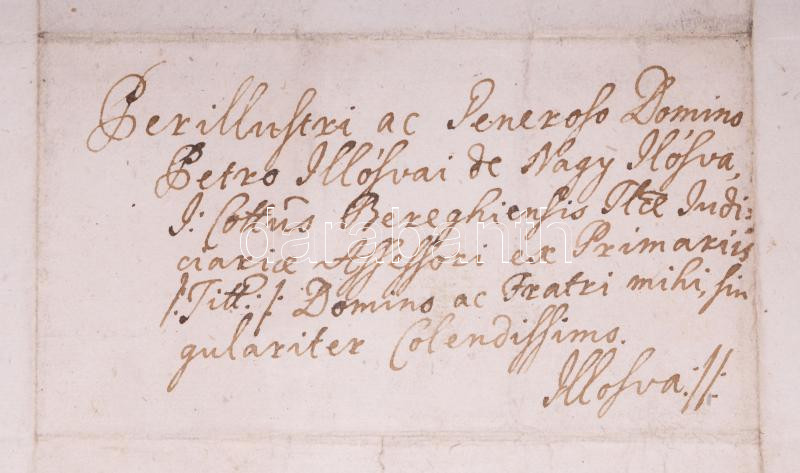 Perillustri ac Generoso Domino
Petro Illósvai de Nagy Ilósva,
I: Cottũs Bereghiensis Tlæ Iudi:
ciariæ Assessori ex Primariis
/: Titt: /: Domino ac Fratri mihi, sin
gulariter Colendissimo.
Illosva://:
darabanth